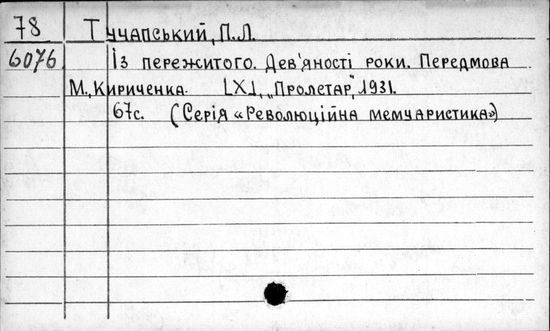 78 Тучапський, П.Л.
6076 Із пережитого. Дев'яності роки. Передмова
М. Кириченка. [Х], „Пролетар", 1931.
67с. (Серія «Революційна мемуаристика»)